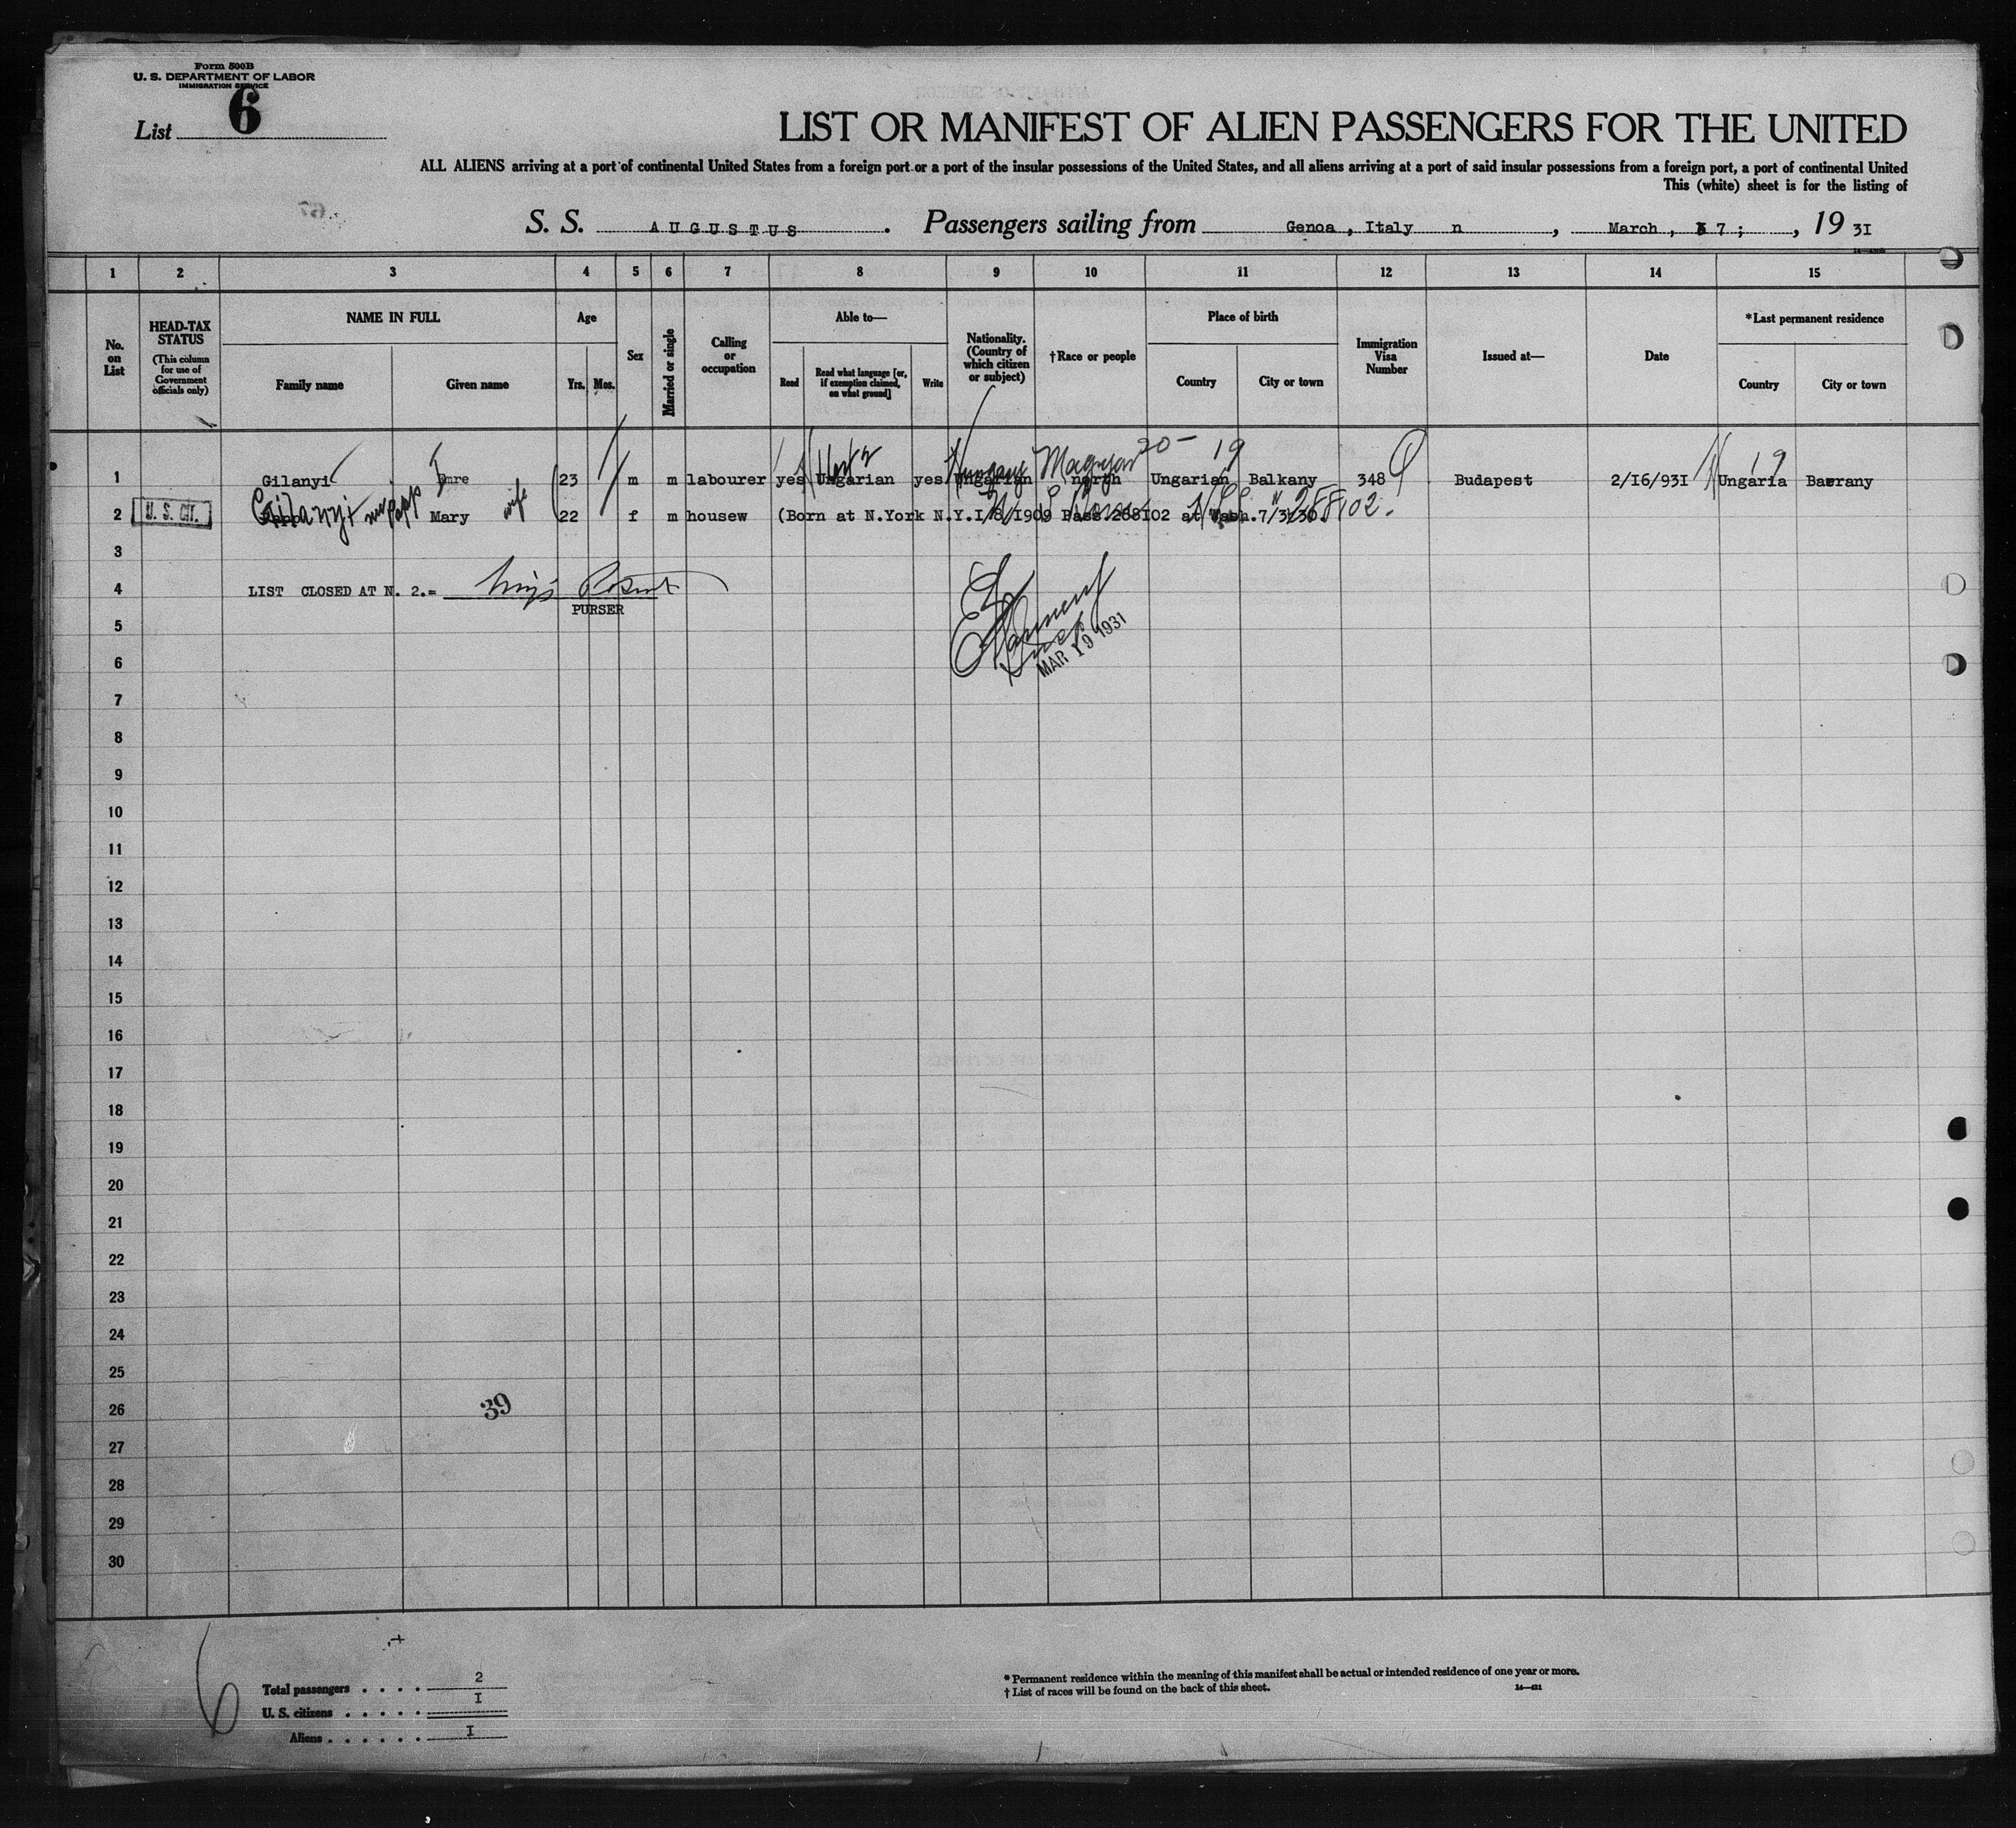 Form 500B
U. S. DEPARTMENT OF LABOR
IMMIGRATION SERVICE
List 6
LIST OR MANIFEST OF ALIEN PASSENGERS FOR THE UNITED
ALL ALIENS arriving at a port of continental United States from a foreign port or a port of the insular possessions of the United States, and all aliens arriving at a port of said insular possessions from a foreign port, a port of continental United
This (white) sheet is for the listing of
S. S. AUGUSTUS. Passengers sailing from Genoa, Italy n, March, 7;, 1931
1 2 3 4 5 6 7 8 9 10 11 12 13 14 15
No. on List
HEAD-TAX STATUS
(This column for use of Government officials only)
NAME IN FULL
Family name
Given name
Age
Yrs. Mos.
Sex
Married or single
Calling or occupation
Able to—
Read
Read what language [or, if exemption claimed, on what ground]
Write
Nationality. (Country of which citizen or subject)
†Race or people
Place of birth
Country
City or town
Immigration Visa Number
Issued at—
Date
*Last permanent residence
Country
City or town
20- 19
Hungary Magyar
19
1 Gilanyi Imre 23 m m labourer yes Ungarian yes Ungarian north Ungarian Balkany 348 Budapest 2/I6/93I Ungaria
2 U. S. CIT. Gilanyi Papp Mary wife 22 f m housew (Born at N.York N.Y.I/8/1909 Pass.288I02 at Wash.7/3/30
288102.
3
4 LIST CLOSED AT N. 2.=
PURSER
5
MAR 19 1931
6
7
8
9
10
11
12
13
14
15
16
17
18
19
20
21
22
23
24
25
26
39
27
28
29
30
6
Total passengers . . . . 2
U. S. citizens . . . . . I
Aliens . . . . . . I
* Permanent residence within the meaning of this manifest shall be actual or intended residence of one year or more.
† List of races will be found on the back of this sheet.
14—421